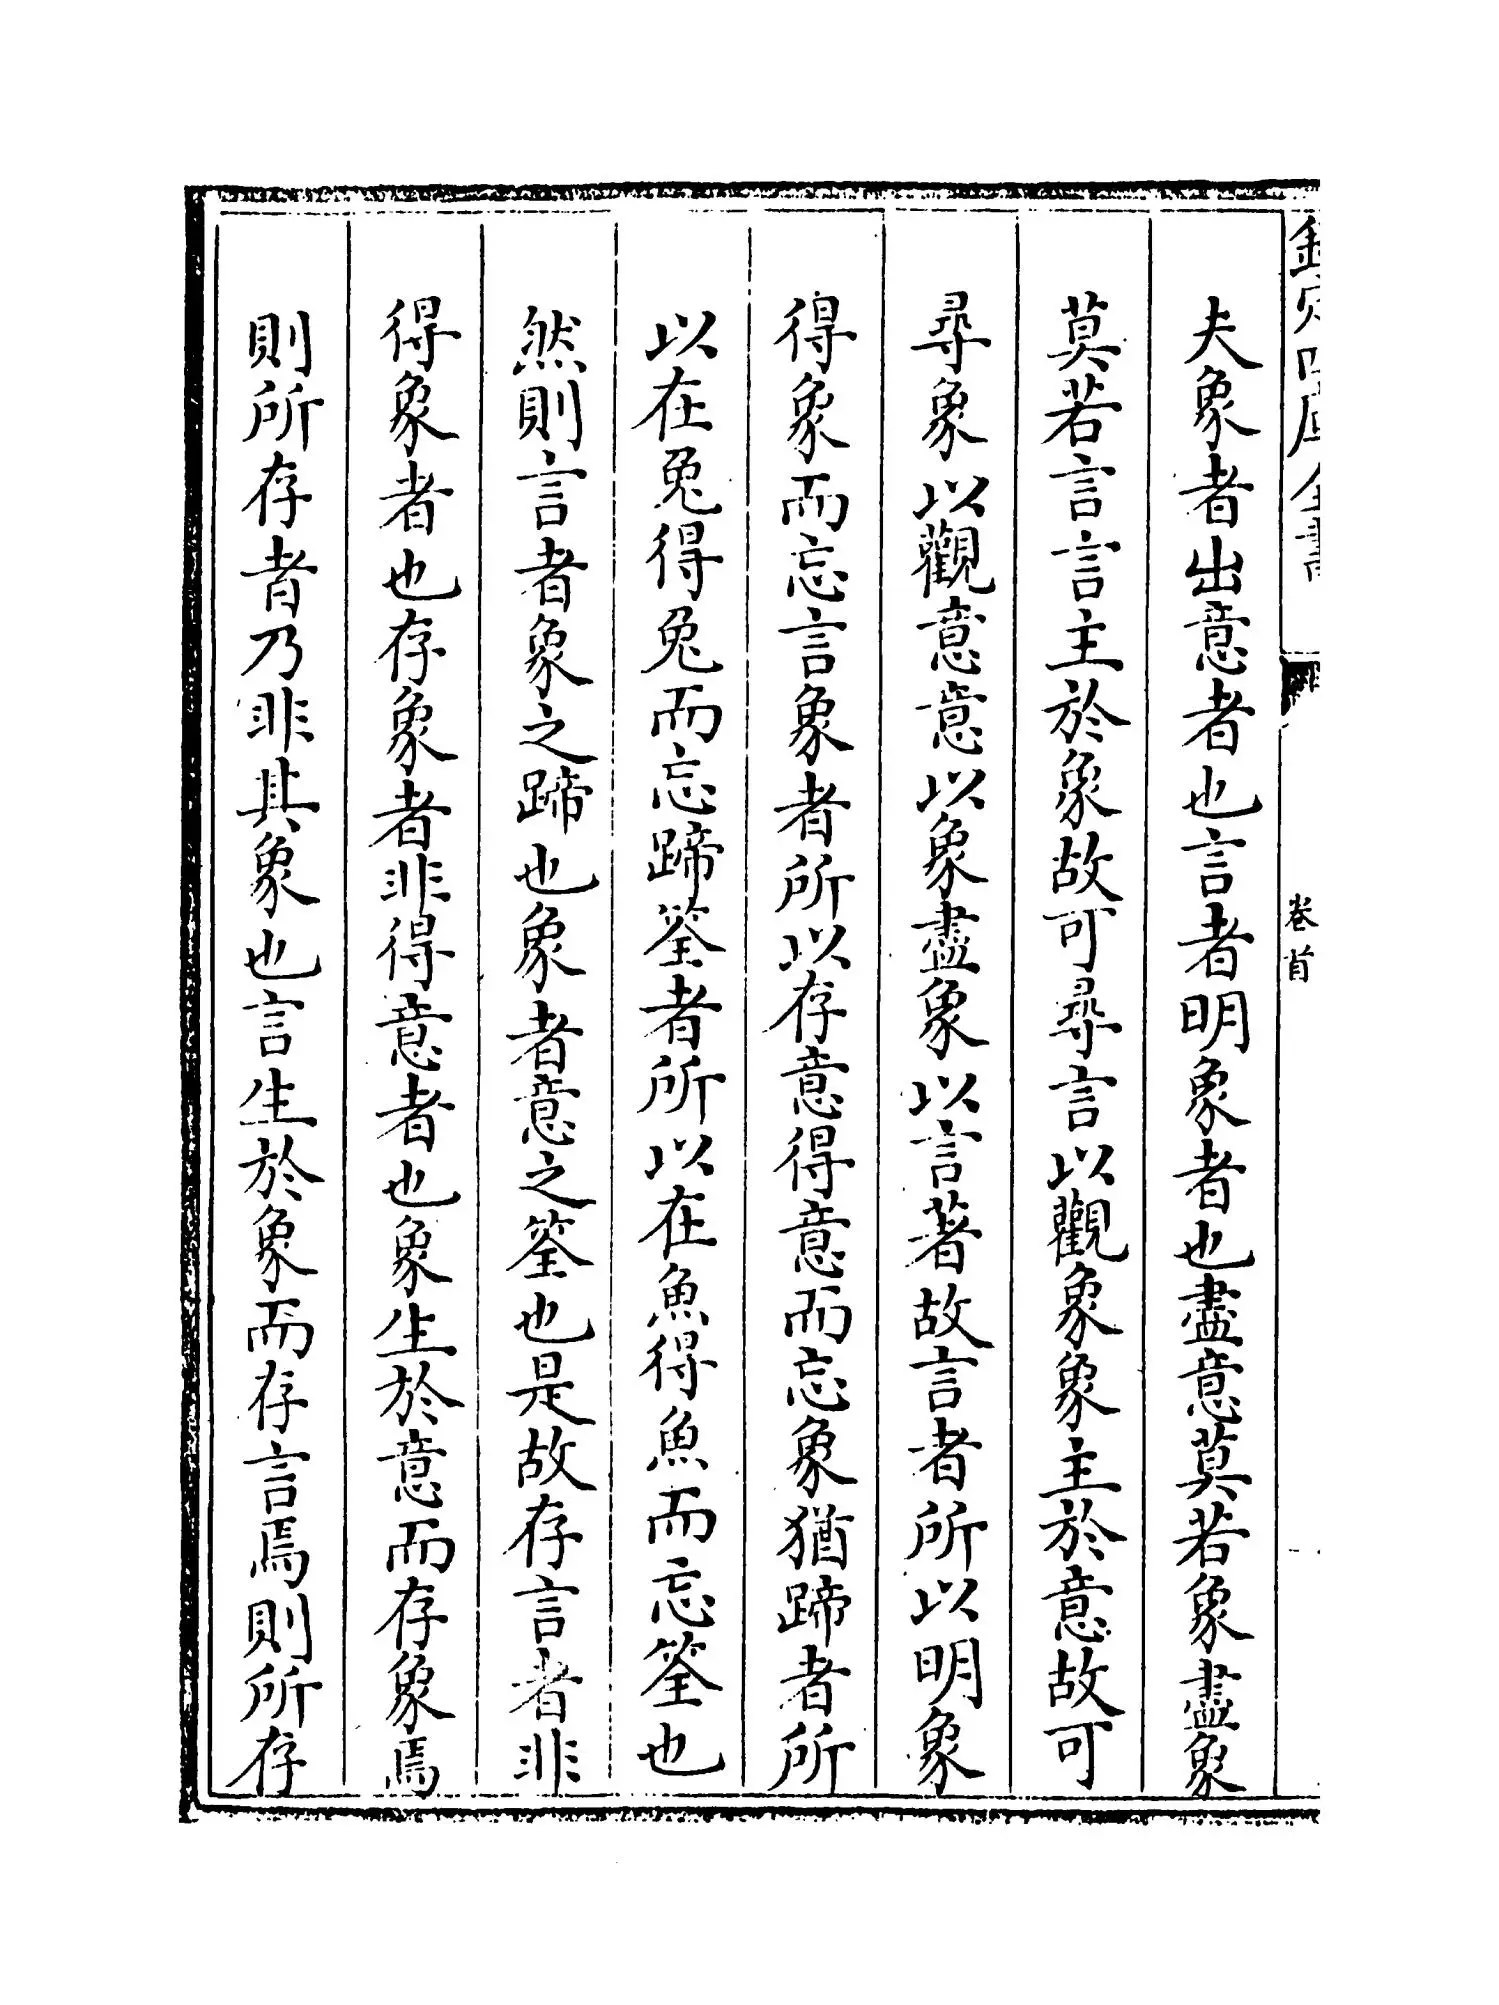 欽定四庫全書
卷首
夫象者出意者也言者明象者也盡意莫若象盡象
莫若言言主於象故可尋言以觀象象主於意故可
尋象以觀意意以象盡象以言著故言者所以明象
得象而忘言象者所以存意得意而忘象猶蹄者所
以在兎得兎而忘蹄筌者所以在魚得魚而忘筌也
然則言者象之蹄也象者意之筌也是故存言者非
得象者也存象者非得意者也象生於意而存象焉
則所存者乃非其象也言生於象而存言焉則所存